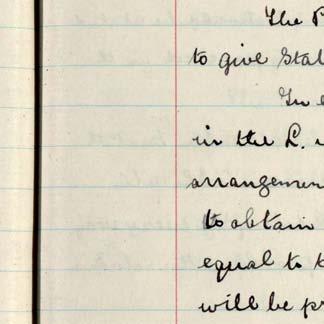 The
to give Stat
In
in the L.
arrangemen
to obtain
equal to
will be pr